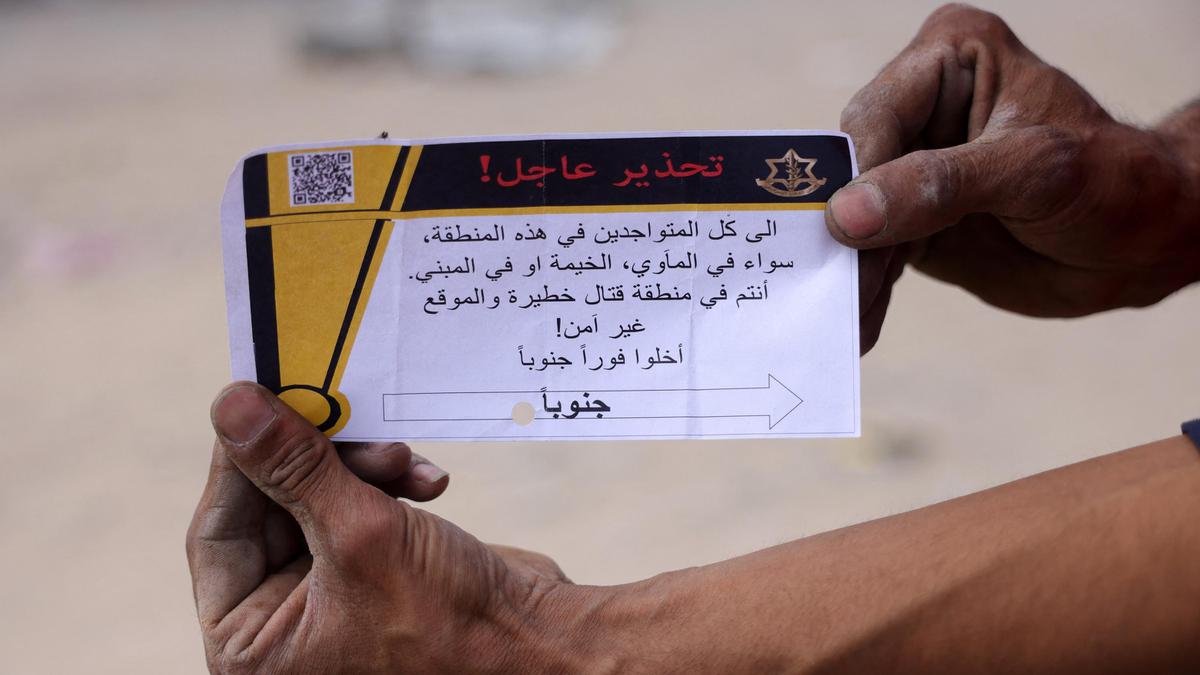 تحذير عاجل!
الى كَل المتواجدين في هذه المنطقة،
سواء في المآوي، الخيمة او في المبني.
أنتم في منطقة قتال خطيرة والموقع
غير آمن!
أخلوا فوراً جنوباً
جنوباً